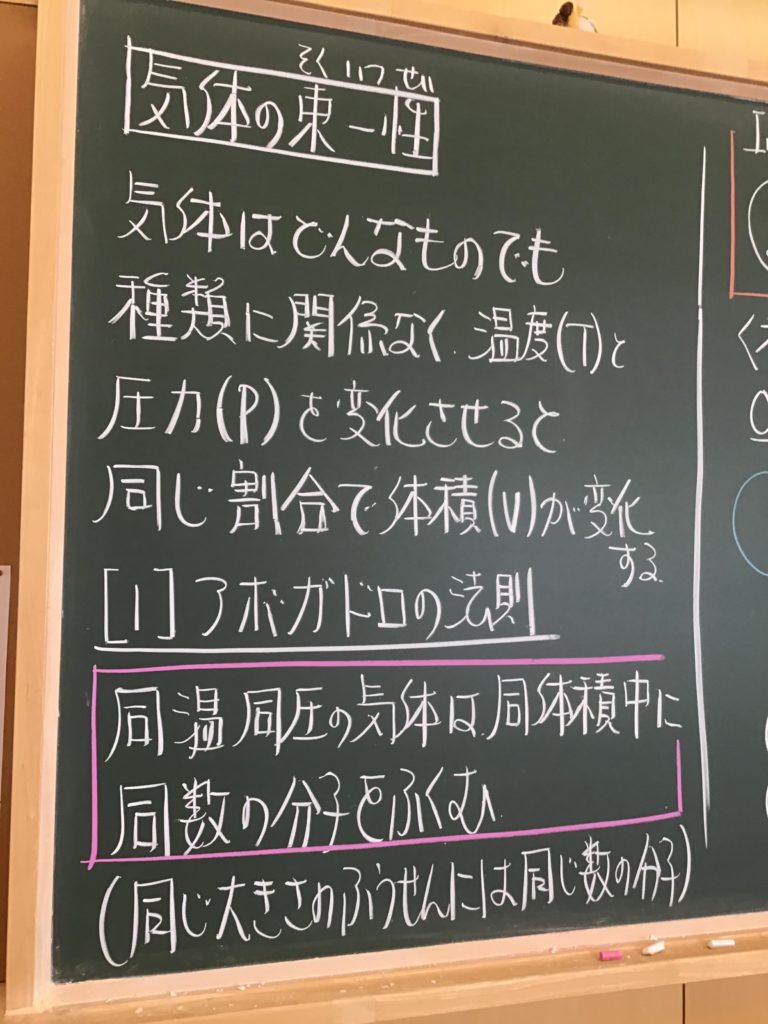 そくいつせい
気体の東一性
気体はどんなものでも
種類に関係なく、温度(T)と
圧力(P)を変化させると
同じ割合で体積(V)が変化
する
[1]アボガドロの法則
同温同圧の気体は、同体積中に
同数の分子をふくむ
(同じ大きさのふうせんには同じ数の分子)